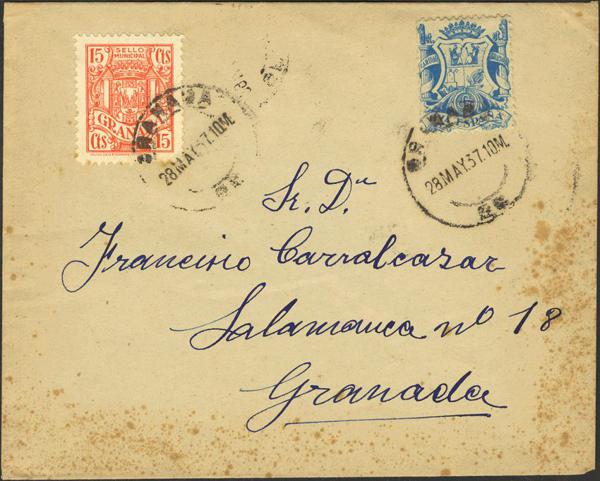 15 Cts
SELLO
MUNICIPAL
GRAN
Cts 15
GRANADA
28.MAY.37.10M.
ESPAÑA
28.MAY.37.10M.
Sr. Dn
Francisco Carralcazar
Salamanca nº 18
Granada